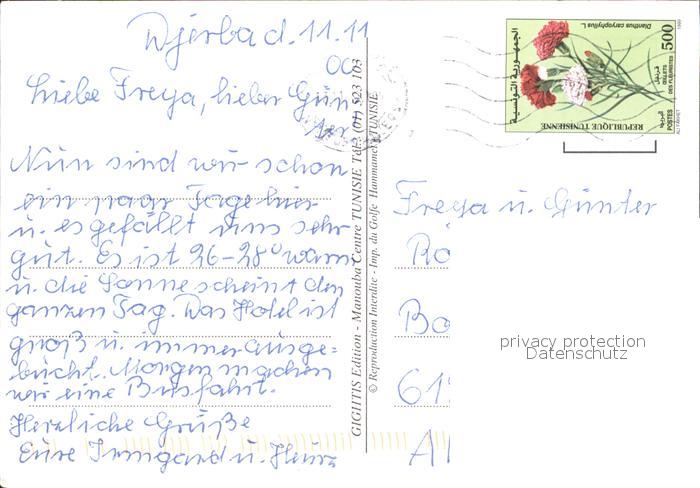 Djerba d. 11.11
00
Liebe Freya, lieber Gün
ter
Nun sind wir schon
ein paar Tage hier
u. es gefällt uns sehr
gut. Es ist 26-28° warm
u. die Sonne scheint den
ganzen Tag. Das Hotel ist
groß u. immer ausge=
bucht. Morgen machen
wir eine Busfahrt.
Herzliche Grüße
Eure Irmgard u. Heinz
GIGHTIS Edition - Manouba Centre TUNISIE Tél.: (01) 523 103
© Reproduction Interdite - Imp. du Golfe Hammamet TUNISIE
Dianthus caryophyllus L.
500
الجمهورية التونسية
REPUBLIQUE TUNISIENNE
OEILLETS
DES FLEURISTES
قرنفل
البريد
POSTES
Freya u. Günter
Rö
Bo
61
A
privacy protection
Datenschutz